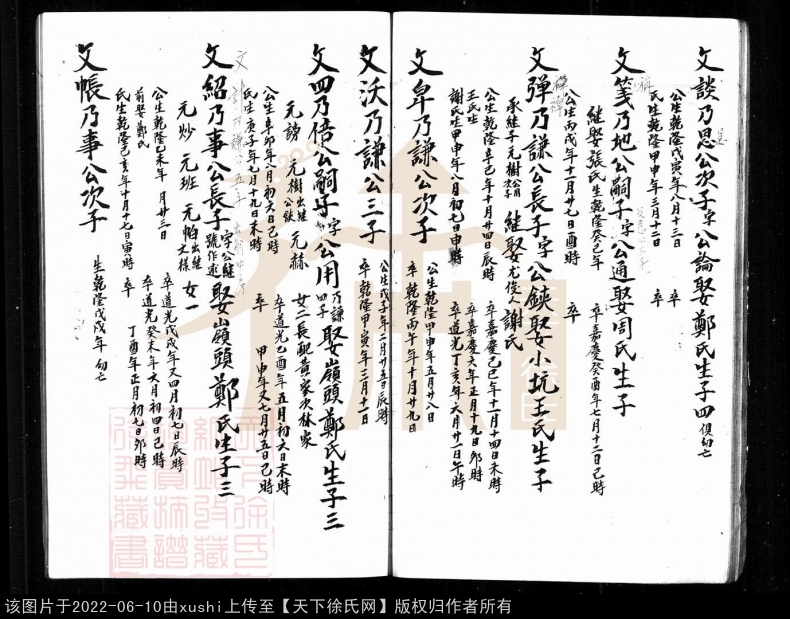 文談乃思公次子字公論娶鄭氏生子四俱幼亡
公生乾隆戊寅年八月十三 卒
氏生乾隆甲申年三月十二 卒
文箋乃地公嗣子字公通娶周氏生子
繼娶張氏生乾隆癸巳年 卒嘉慶癸酉年七月十二日己時
公生丙戌年十一月廿七日酉時 卒
文彈乃謙公長子字公鋏娶小坑王氏生子
承繼子元樹公用次子 繼娶尤俊人謝氏
公生乾隆辛巳年十月廿四日辰時 卒嘉慶己巳年十一月十四日未時
王氏生 卒嘉慶六年正月十九日卯時
謝氏生甲申年八月初七日申時 卒道光丁亥年六月廿一日午時
文阜乃謙公次子
公生乾隆甲申年五月廿八日
卒乾隆丙午年十月廿九日
文沃乃謙公三子
公生戊子年二月廿五日辰時
卒乾隆甲寅年三月十一日
文四乃倍公嗣子字公用乃謙四子娶嶺頭鄭氏生子三
元謗 元樹出繼公鋏 元赫 女二長配黃家次林家
公生辛卯年八月初六日己時 卒道光己酉年五月初六日未時
氏生庚子年七月十九日未時 卒 甲申年又七月廿五日己時
文紹乃事公長子字公繼號作述娶嶺頭鄭氏生子三
元炒 元班 元帕出繼文樣 女一
公生乾隆乙未年 月廿三日 卒道光戊戌年又四月初七日辰時
前娶鄭氏 卒道光癸未年六月初四日己時
氏生乾隆己亥年十月十七日寅時 卒 丁酉年正月初七日卯時
文帳乃事公次子
生乾隆戊戌年 幼亡
该图片于2022-06-10由xushi上传至【天下徐氏网】版权归作者所有